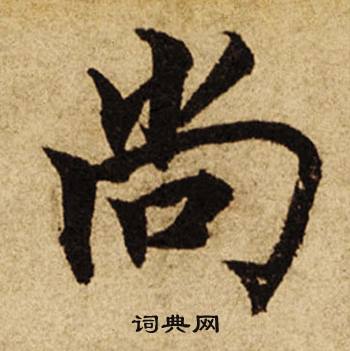 尚
词典网